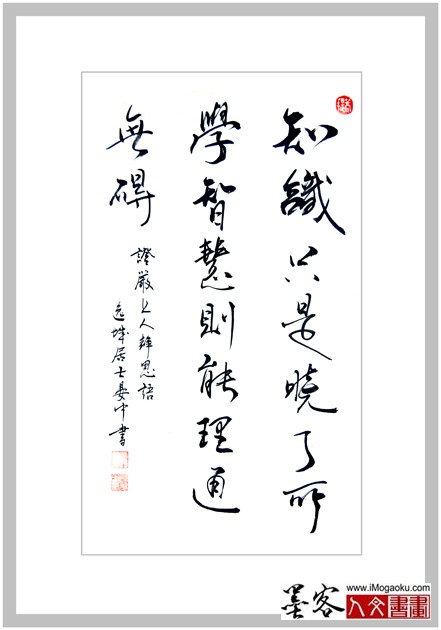 知識只是曉了所
學智慧則能理通
無碍
證嚴上人靜思語
逸城居士晏中書
墨客
www.iMogaoku.com
人文書畫